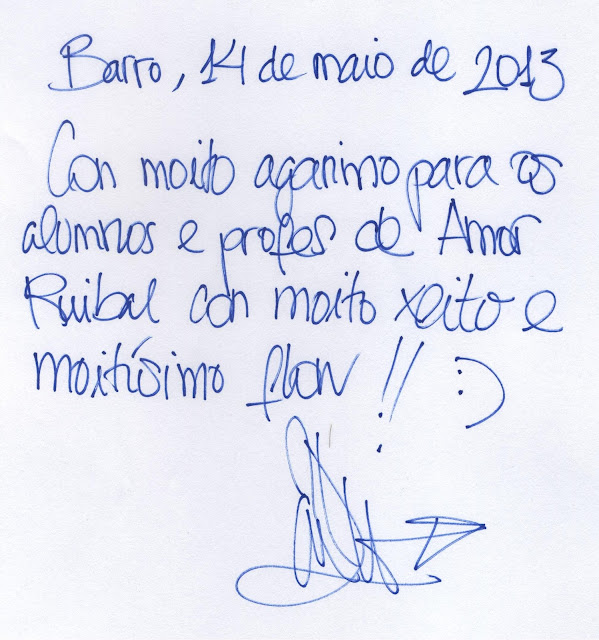 Barro, 14 de maio de 2013
Con moito agarimo para os
alumnos e profes de Amor
Ruibal con moito xeito e
moitísimo flow !! :)